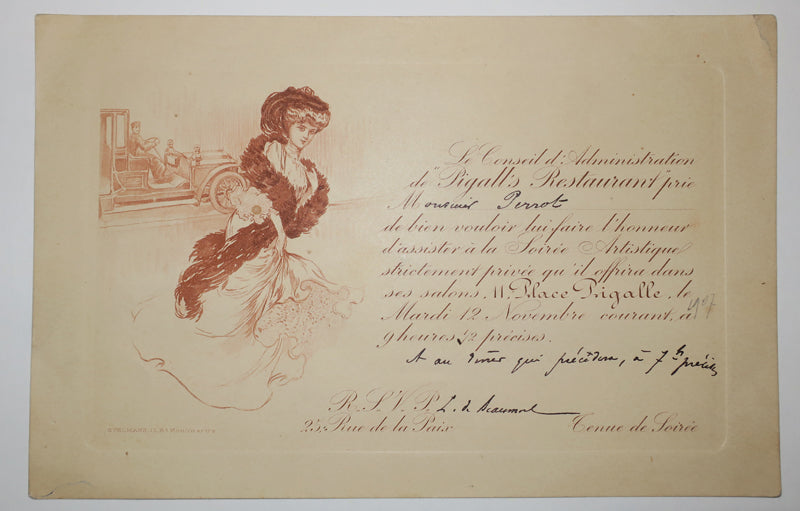 Le Conseil d'Administration
de "Pigall's Restaurant" prie
Monsieur Perrot
de bien vouloir lui faire l'honneur
d'assister à la Soirée Artistique
strictement privée qu'il offrira dans
ses salons, 11, Place Pigalle, le
Mardi 12 Novembre courant, à 1907
9 heures 1/2 précises.
et au dîner qui précédera, à 7h précises
R.S.V.P. L. de Beaumont
23, Rue de la Paix
Tenue de Soirée